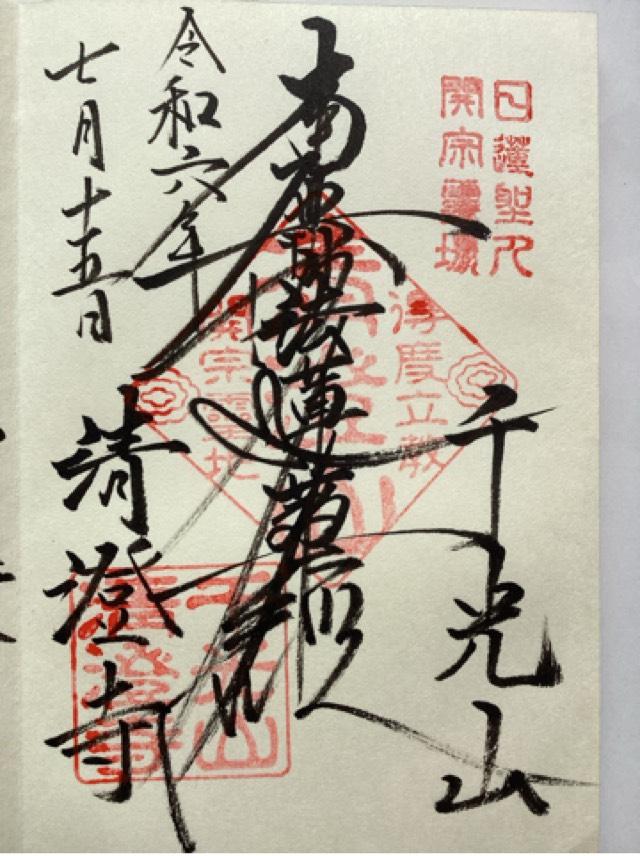 日蓮聖人
開宗霊場
千光山
得度立教
南無妙法蓮華経
開宗霊地
令和六年
七月十五日
清澄寺
千光山
清澄寺